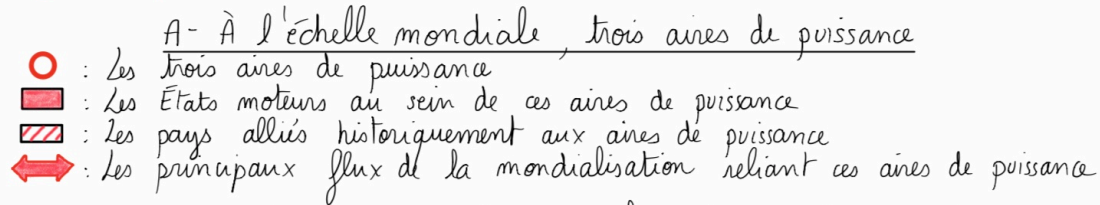 A- À l'échelle mondiale, trois aires de puissance
: Les trois aires de puissance
: Les États moteurs au sein de ces aires de puissance
: Les pays alliés historiquement aux aires de puissance
: Les principaux flux de la mondialisation reliant ces aires de puissance